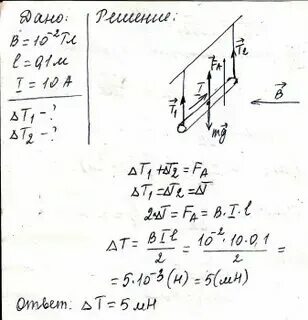 Дано: Решение:
B = 10⁻² Тл
l = 0,1 м
I = 10 А
ΔT₁ - ?
ΔT₂ - ?
T₂
F_A
I
T₁
B
mg
ΔT₁ + ΔT₂ = F_A
ΔT₁ = ΔT₂ = ΔT
2ΔT = F_A = B·I·l
ΔT = BIl/2 = 10⁻²·10·0,1/2 =
= 5·10⁻³ (Н) = 5 (мН)
Ответ: ΔT = 5 мН